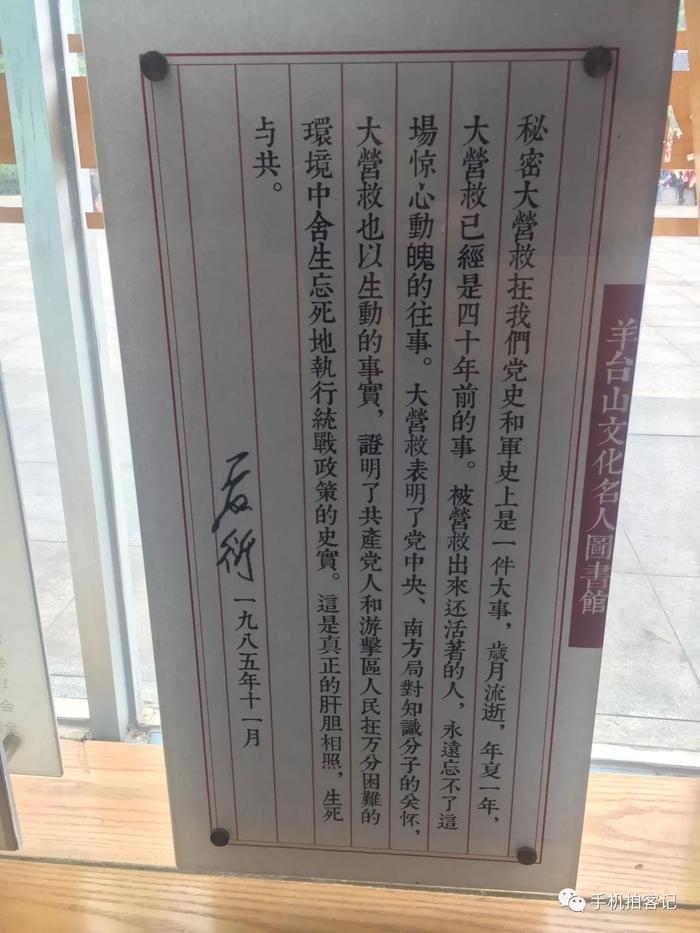 秘密大營救在我們党史和軍史上是一件大事，歲月流逝，年夏一年，
大營救已經是四十年前的事。被營救出來还活著的人，永遠忘不了這
場惊心動魄的往事。大營救表明了党中央、南方局對知識分子的关怀，
大營救也以生動的事實，證明了共產党人和游擊區人民在万分困難的
環境中舍生忘死地執行統戰政策的史實。這是真正的肝胆相照，生死
与共。
夏衍
一九八五年十一月
羊台山文化名人圖書館
手机拍客记